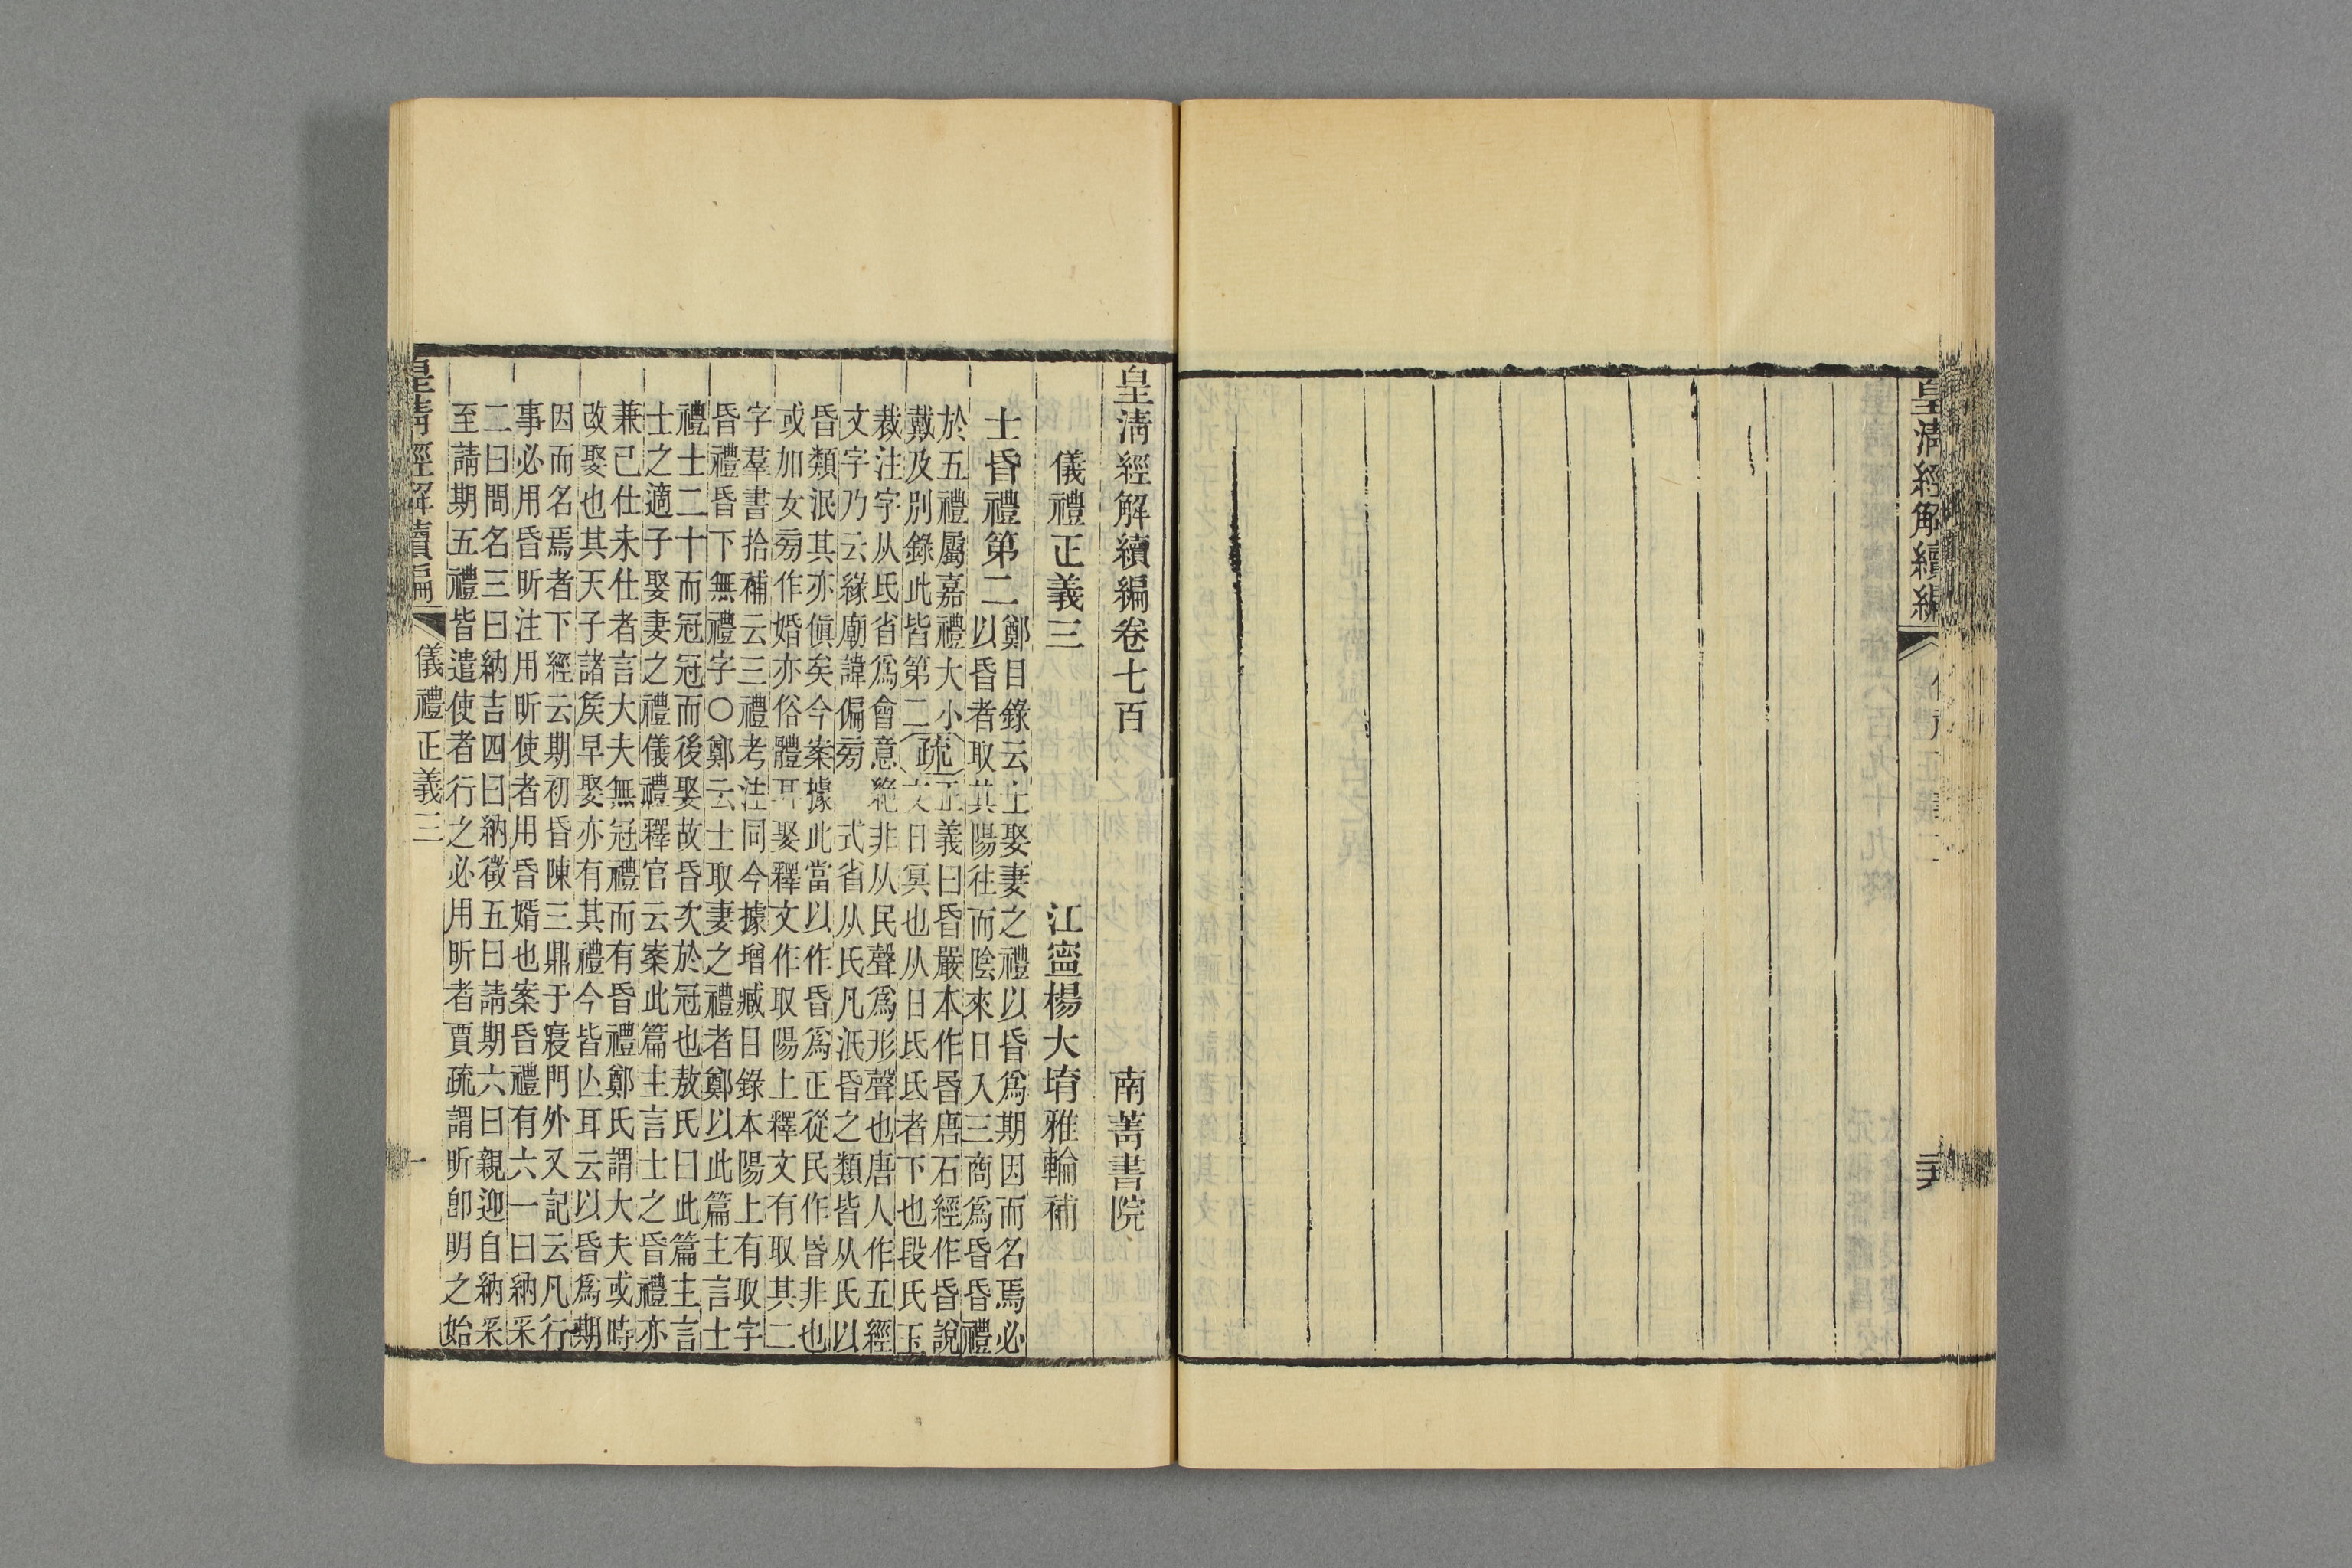 皇清經解續編
皇清經解續編卷七百 南菁書院
儀禮正義三 江寧楊大堉雅輪補
士昏禮第二
鄭目錄云士娶妻之禮以昏爲期因而名焉必
以昏者取其陽往而陰來日入三商爲昏昏禮
於五禮屬嘉禮大小
戴及別錄此皆第二
疏
正義曰昏嚴本作昬唐石經作昏說
文日冥也从日氐氐者下也段氏玉
裁注字从氐省爲會意絶非从民聲爲形聲也唐人作五經
文字乃云緣廟諱偏旁 式省从氐凡泯昏之類皆从氐以
昏類泯其亦傎矣今案據此當以作昏爲正從民作昬非也
或加女旁作婚亦俗體耳娶釋文作取陽上釋文有取其二
字羣書拾補云三禮考注同今據增臧目錄本陽上有取字
昏禮昏下無禮字○鄭云士取妻之禮者鄭以此篇主言士
禮士二十而冠冠而後娶故昏次於冠也敖氏曰此篇主言
士之適子娶妻之禮儀禮釋官云案此篇主言士之昏禮亦
兼已仕未仕者言大夫無冠禮而有昏禮鄭氏謂大夫或時
改娶也其天子諸矦早娶亦有其禮今皆亾耳云以昏爲期
因而名焉者下經云期初昏陳三鼎于寢門外又記云凡行
事必用昏昕注用昕使者用昏婿也案昏禮有六一曰納采
二曰問名三曰納吉四曰納徵五曰請期六曰親迎自納采
至請期五禮皆遣使者行之必用昕者賈疏謂昕卽明之始
皇清經解續編 儀禮正義三 一